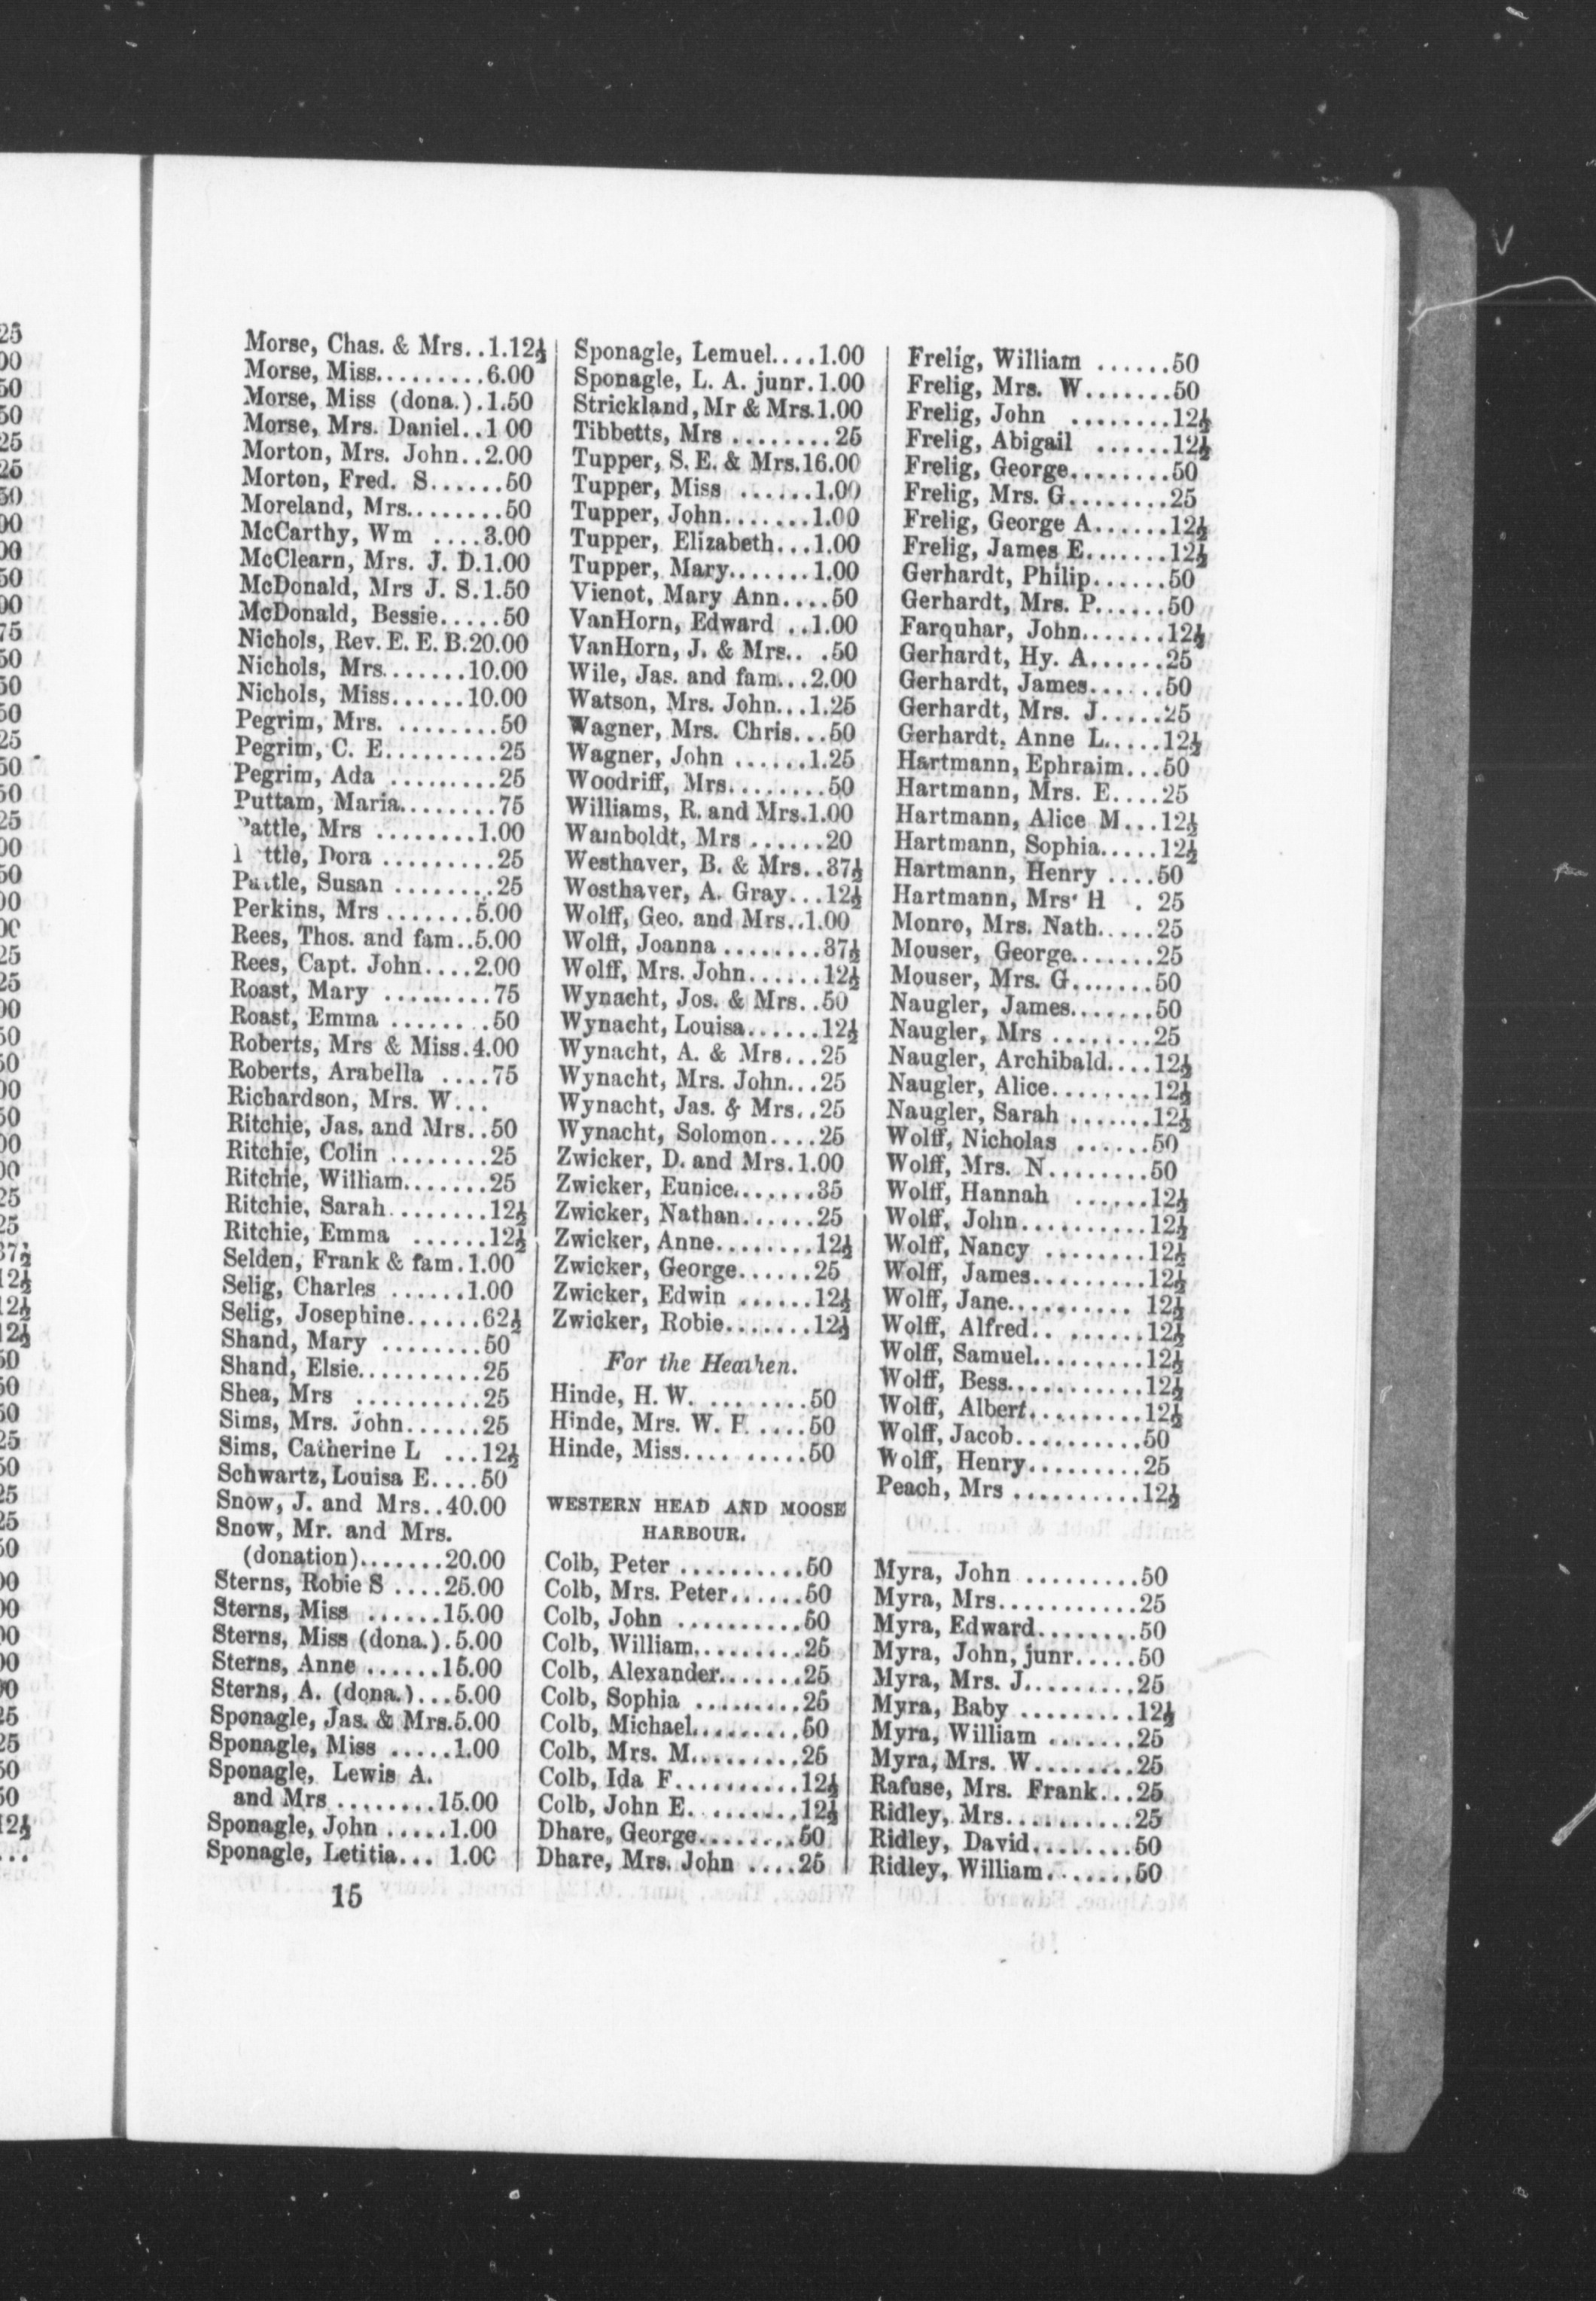 Morse, Chas. & Mrs..1.12½
Morse, Miss.........6.00
Morse, Miss (dona.).1.50
Morse, Mrs. Daniel..1 00
Morton, Mrs. John..2.00
Morton, Fred. S......50
Moreland, Mrs........50
McCarthy, Wm ....3.00
McClearn, Mrs. J. D.1.00
McDonald, Mrs J. S.1.50
McDonald, Bessie.....50
Nichols, Rev. E. E. B.20.00
Nichols, Mrs.......10.00
Nichols, Miss......10.00
Pegrim, Mrs. ........50
Pegrim, C. E.........25
Pegrim, Ada .........25
Puttam, Maria........75
attle, Mrs ........1.00
ttle, Dora .........25
Pattle, Susan ........25
Perkins, Mrs .......5.00
Rees, Thos. and fam..5.00
Rees, Capt. John....2.00
Roast, Mary .........75
Roast, Emma ....... .50
Roberts, Mrs & Miss.4.00
Roberts, Arabella ....75
Richardson, Mrs. W...
Ritchie, Jas. and Mrs..50
Ritchie, Colin ........25
Ritchie, William.......25
Ritchie, Sarah........12½
Ritchie, Emma ......12½
Selden, Frank & fam.1.00
Selig, Charles ......1.00
Selig, Josephine......62½
Shand, Mary ........50
Shand, Elsie..........25
Shea, Mrs ..........25
Sims, Mrs. John......25
Sims, Catherine L ...12½
Schwartz, Louisa E....50
Snow, J. and Mrs..40.00
Snow, Mr. and Mrs.
(donation).......20.00
Sterns, Robie S ....25.00
Sterns, Miss ......15.00
Sterns, Miss (dona.).5.00
Sterns, Anne ......15.00
Sterns, A. (dona.)...5.00
Sponagle, Jas. & Mrs.5.00
Sponagle, Miss .....1.00
Sponagle, Lewis A.
and Mrs ........15.00
Sponagle, John .....1.00
Sponagle, Letitia... 1.00
Sponagle, Lemuel....1.00
Sponagle, L. A. junr.1.00
Strickland, Mr & Mrs.1.00
Tibbetts, Mrs ........25
Tupper, S. E. & Mrs.16.00
Tupper, Miss ......1.00
Tupper, John.......1.00
Tupper, Elizabeth...1.00
Tupper, Mary.......1.00
Vienot, Mary Ann....50
VanHorn, Edward ..1.00
VanHorn, J. & Mrs.. .50
Wile, Jas. and fam...2.00
Watson, Mrs. John...1.25
Wagner, Mrs. Chris...50
Wagner, John ......1.25
Woodriff, Mrs........50
Williams, R. and Mrs.1.00
Wamboldt, Mrs ......20
Westhaver, B. & Mrs..37½
Westhaver, A. Gray...12½
Wolff, Geo. and Mrs..1.00
Wolff, Joanna ........37½
Wolff, Mrs. John......12½
Wynacht, Jos. & Mrs..50
Wynacht, Louisa......12½
Wynacht, A. & Mrs...25
Wynacht, Mrs. John...25
Wynacht, Jas. & Mrs..25
Wynacht, Solomon....25
Zwicker, D. and Mrs.1.00
Zwicker, Eunice.......35
Zwicker, Nathan......25
Zwicker, Anne........12½
Zwicker, George......25
Zwicker, Edwin ......12½
Zwicker, Robie.......12½
For the Heathen.
Hinde, H. W. ........50
Hinde, Mrs. W. F. ....50
Hinde, Miss.... .....50
WESTERN HEAD AND MOOSE
HARBOUR.
Colb, Peter ..........50
Colb, Mrs. Peter......50
Colb, John ..........50
Colb, William.........25
Colb, Alexander.......25
Colb, Sophia .........25
Colb, Michael.........50
Colb, Mrs. M.........25
Colb, Ida F..........12½
Colb, John E. .......12½
Dhare, George........50
Dhare, Mrs. John ....25
Frelig, William ......50
Frelig, Mrs. W.......50
Frelig, John ........12½
Frelig, Abigail ......12½
Frelig, George.........50
Frelig, Mrs. G........25
Frelig, George A......12½
Frelig, James E.......12½
Gerhardt, Philip......50
Gerhardt, Mrs. P......50
Farquhar, John.......12½
Gerhardt, Hy. A......25
Gerhardt, James......50
Gerhardt, Mrs. J.....25
Gerhardt, Anne L.....12½
Hartmann, Ephraim...50
Hartmann, Mrs. E....25
Hartmann, Alice M...12½
Hartmann, Sophia.....12½
Hartmann, Henry ....50
Hartmann, Mrs· H . 25
Monro, Mrs. Nath.....25
Mouser, George.......25
Mouser, Mrs. G.......50
Naugler, James.......50
Naugler, Mrs ........25
Naugler, Archibald....12½
Naugler, Alice........12½
Naugler, Sarah .......12½
Wolff, Nicholas ......50
Wolff, Mrs. N........50
Wolff, Hannah ......12½
Wolff, John..........12½
Wolff, Nancy ........12½
Wolff, James.........12½
Wolff, Jane.......... 12½
Wolff, Alfred.. ......12½
Wolff, Samuel.........12½
Wolff, Bess...........12½
Wolff, Albert.........12½
Wolff, Jacob..........50
Wolff, Henry.........25
Peach, Mrs ..........12½
Myra, John .........50
Myra, Mrs...........25
Myra, Edward........50
Myra, John, junr.....50
Myra, Mrs. J.........25
Myra, Baby .........12½
Myra, William .......25
Myra, Mrs. W........25
Rafuse, Mrs. Frank...25
Ridley, Mrs..........25
Ridley, David........50
Ridley, William.......50
15